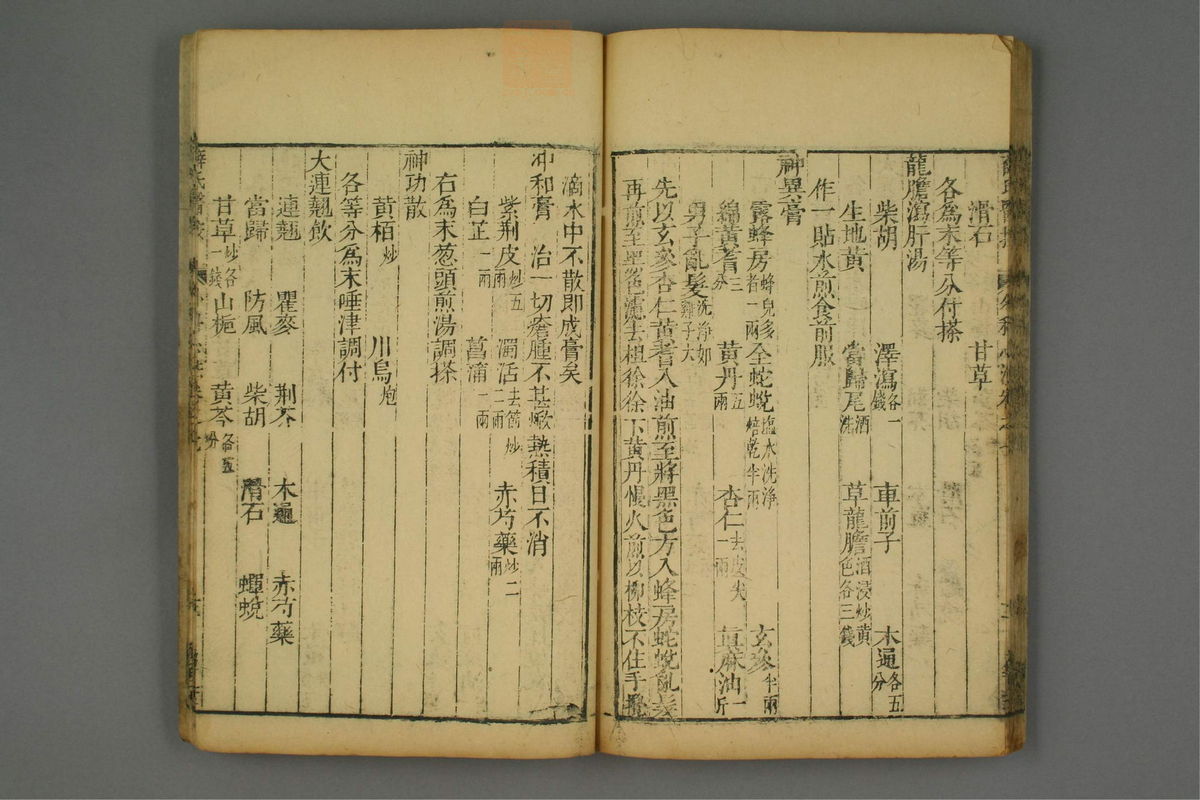 滑石 甘草
各爲末等分付搽
龍膽瀉肝湯
柴胡 澤瀉各一錢 車前子 木通各五分
生地黃 當歸尾酒洗 草龍膽酒浸炒黃色各三錢
作一貼水煎食前服
神異膏
露蜂房蜂兒多者一兩 全蛇蛻塩水洗淨焙乾半兩 玄參半兩
綿黃耆三分 黃丹五兩 杏仁去皮尖一兩 麻油一斤
男子亂髮洗淨如雞子大
先以玄參杏仁黃耆入油煎至將黑色方入蜂房蛇蛻亂髮
再煎至黑色濾去粗徐徐下黃丹慢火煎以柳枝不住手攪
滴水中不散即成膏矣
冲和膏 治一切瘡腫不甚焮熱積日不消
紫荆皮炒五兩 獨活去節炒二兩 赤芍藥炒二兩
白芷一兩 菖蒲一兩
右爲末葱頭煎湯調搽
神功散
黃栢炒 川烏炮
各等分爲末唾津調付
大連翹飲
連翹 瞿麥 荆芥 木通 赤芍藥
當歸 防風 柴胡 滑石 蟬蛻
甘草炒各一錢 山梔 黃芩各五分